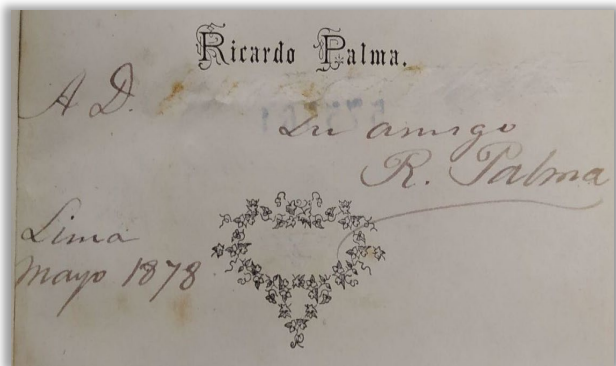 Ricardo Palma.
A D.
Su amigo
R. Palma
Lima
Mayo 1878